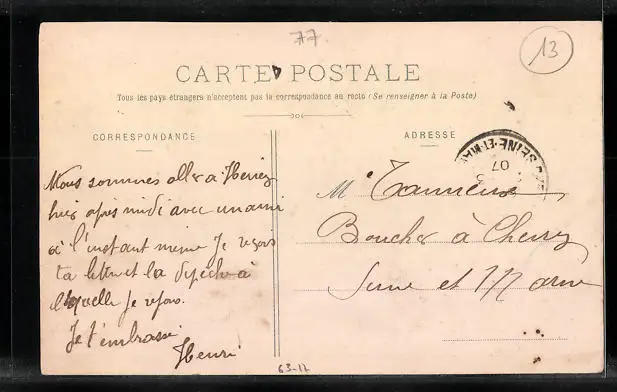 77
13
CARTE POSTALE
Tous les pays étrangers n'acceptent pas la correspondance au recto (Se renseigner à la Poste)
CORRESPONDANCE
ADRESSE
SEINE-ET-MAR
07
Nous sommes allé à
hier après midi avec un ami
à l'instant même je reçois
ta lettre et la dépêche à
laquelle je répons.
Je t'embrasse
Henri
M
Boucher à
Seine et Marne
63-12